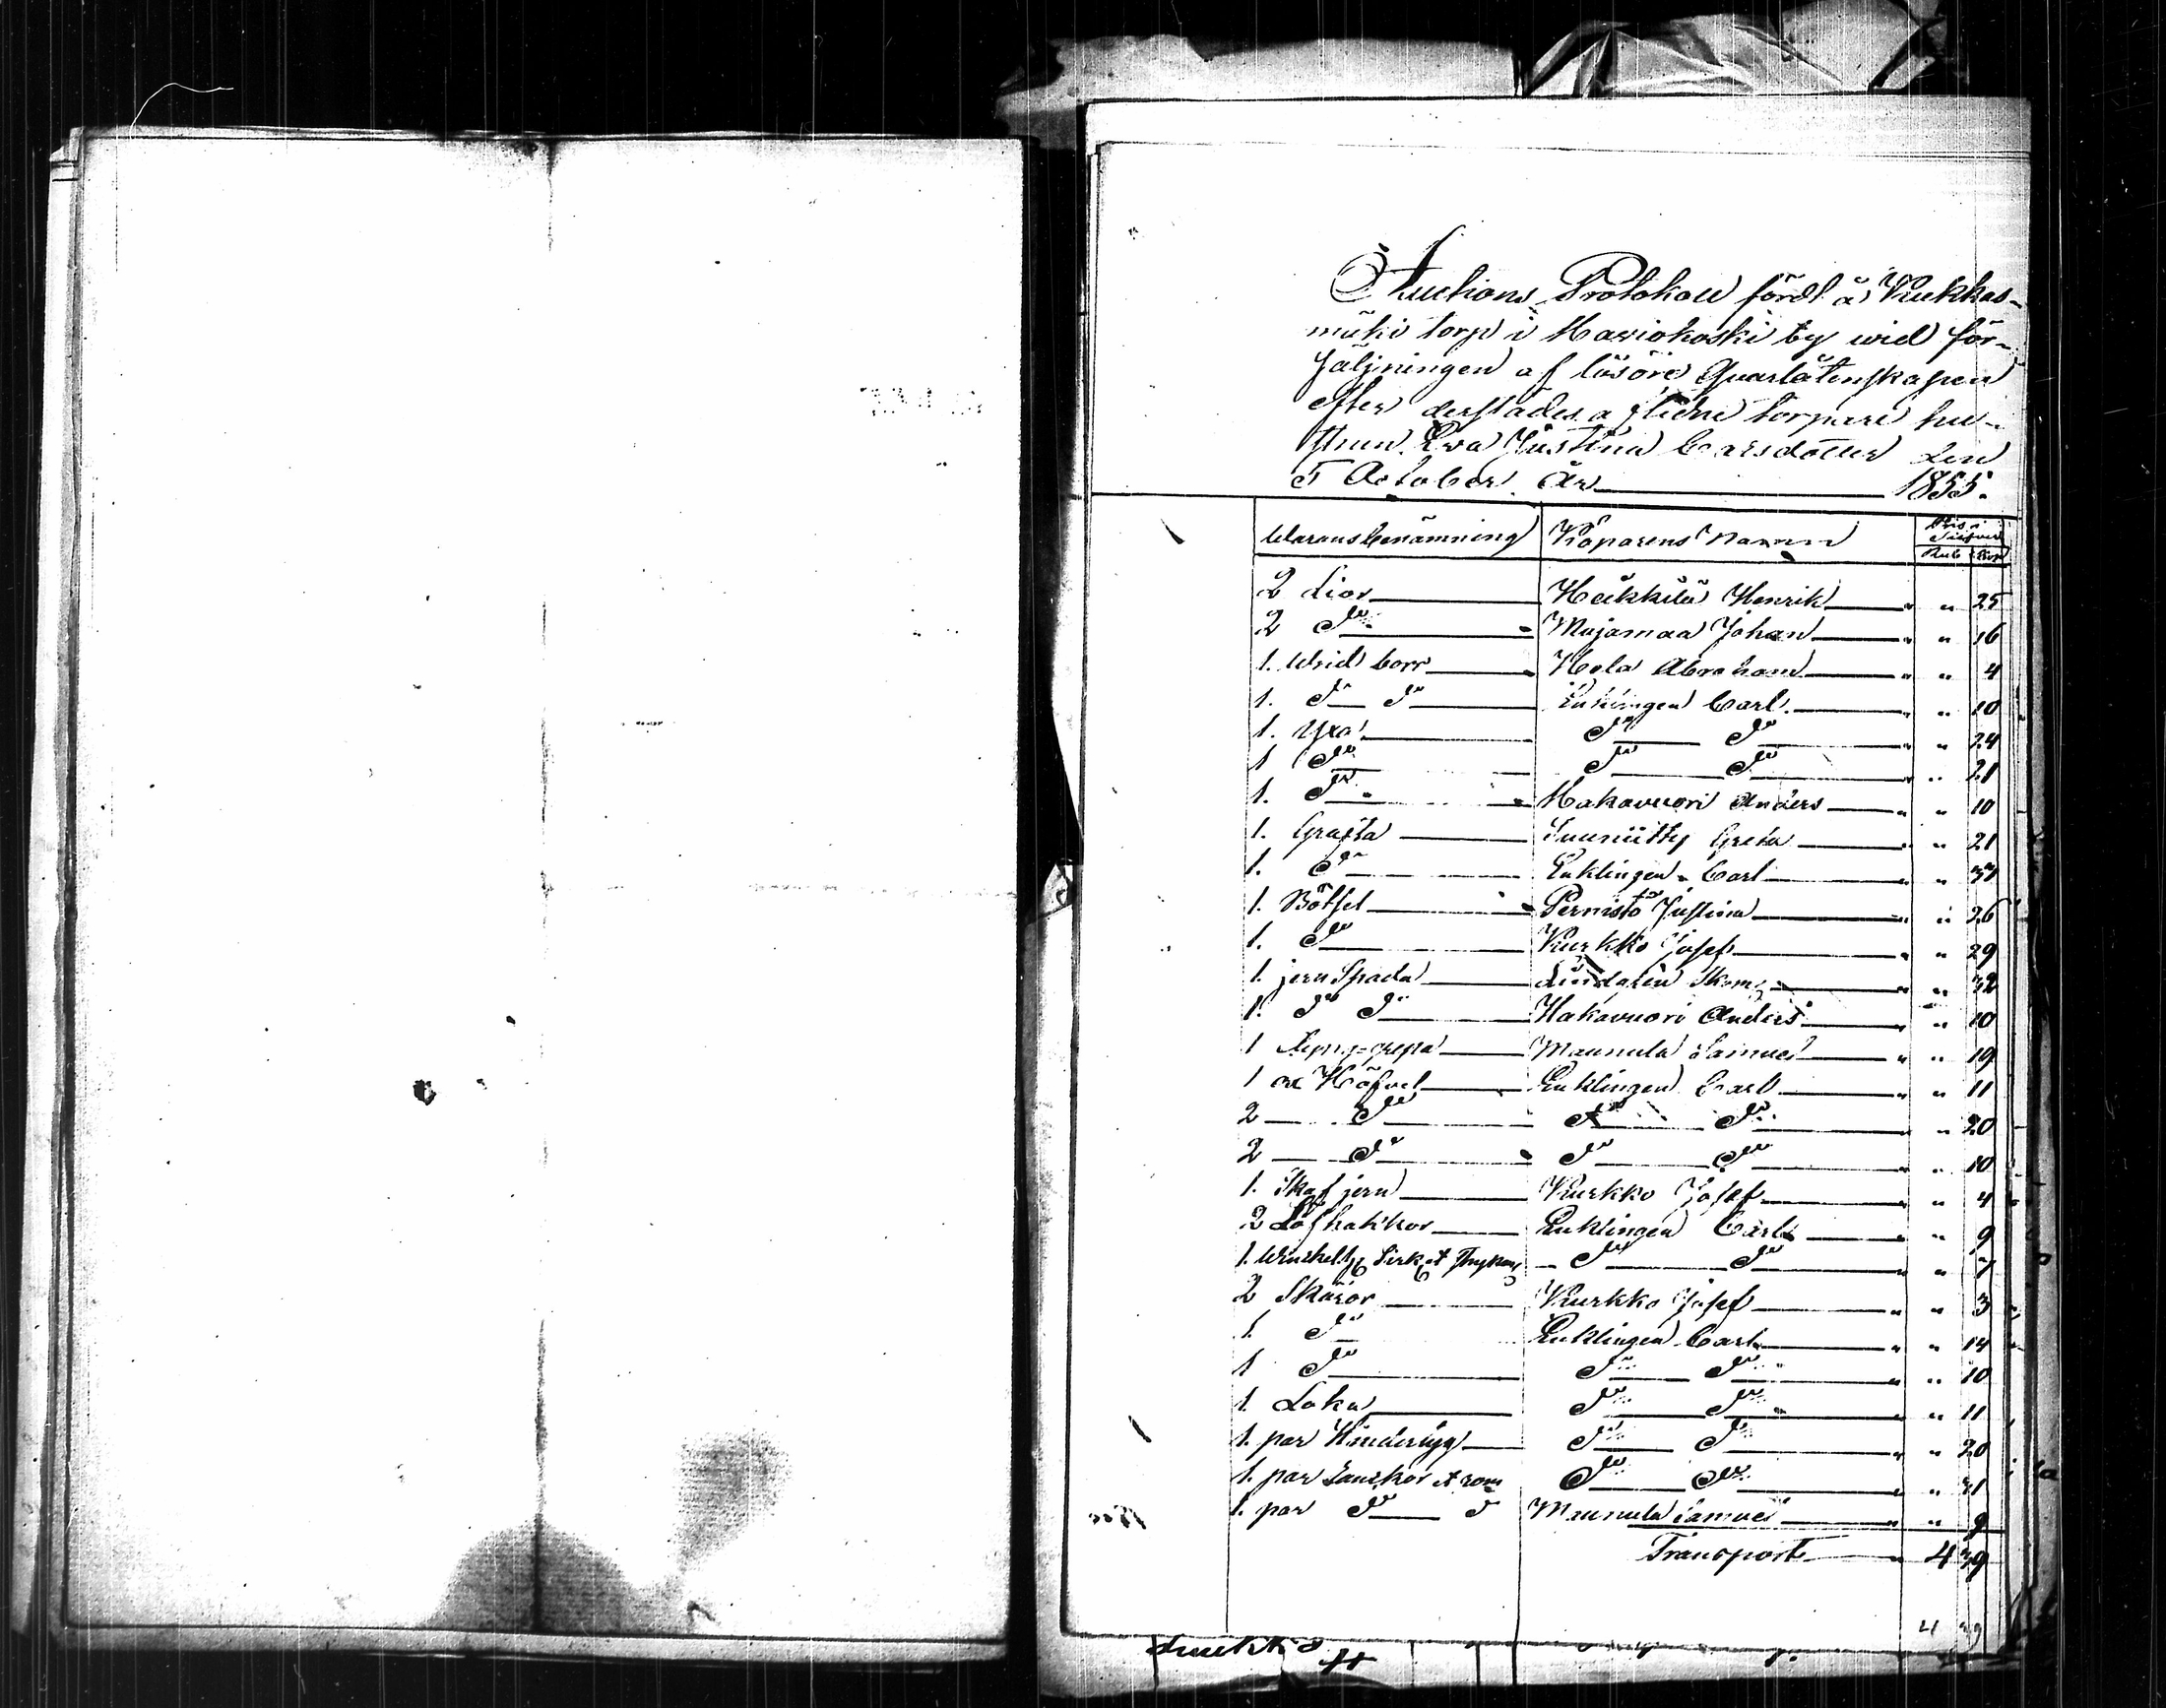 Auctions Protokoll fördt å Kukkas-
mäki torp i Mariokoski by wid för-
säljningen af lösöre Quarlåtenskapen
efter derstädes aflidne torpare hu-
strun Eva Justina Carlsdotter den
5 October År 1855.
Warans benämning Köparens Namn Pris i Silfver
Rub Kop
2 Lior Heikkilä Henrik " " 25
2 Do Majamaa Johan " " 16
1. Wrid borr Hola Abraham " " 4
1. Do Do Enklingen Carl " " 10
1. Yxa Do Do " " 24
1 Do Do Do " " 21
1. Do Hakavuori Anders " " 10
1. Gryta Suuniitty Greta " " 21
1. Do Enklingen Carl " " 37
1. Bötsel Pernistö Justina " " 26
1. Do Kurkko Josef " " 29
1. jern Spada Lindgren Skom " " 32
1. Do Do Hakavuori Anders " " 10
1 grepa Maunula Samuel " " 19
1 Höfvel Enklingen Carl " " 11
2 Do Do Do " 20
2 Do Do Do " 10
1. Skaf jern Kurkko Josef " " 4
2 Löfhakkor Enklingen Carl " " 9
1. Winkel Do Do " " 7
2 Skäror Kurkko Josef " " 3
1. Do Enklingen Carl " " 14
1 Do Do Do " " 10
1. Laka Do Do " " 11
1. par Do Do " " 20
1. par Do Do " " 31
1. par Do Do Maunula Samuel " " 9
Transport 4 39
4 39